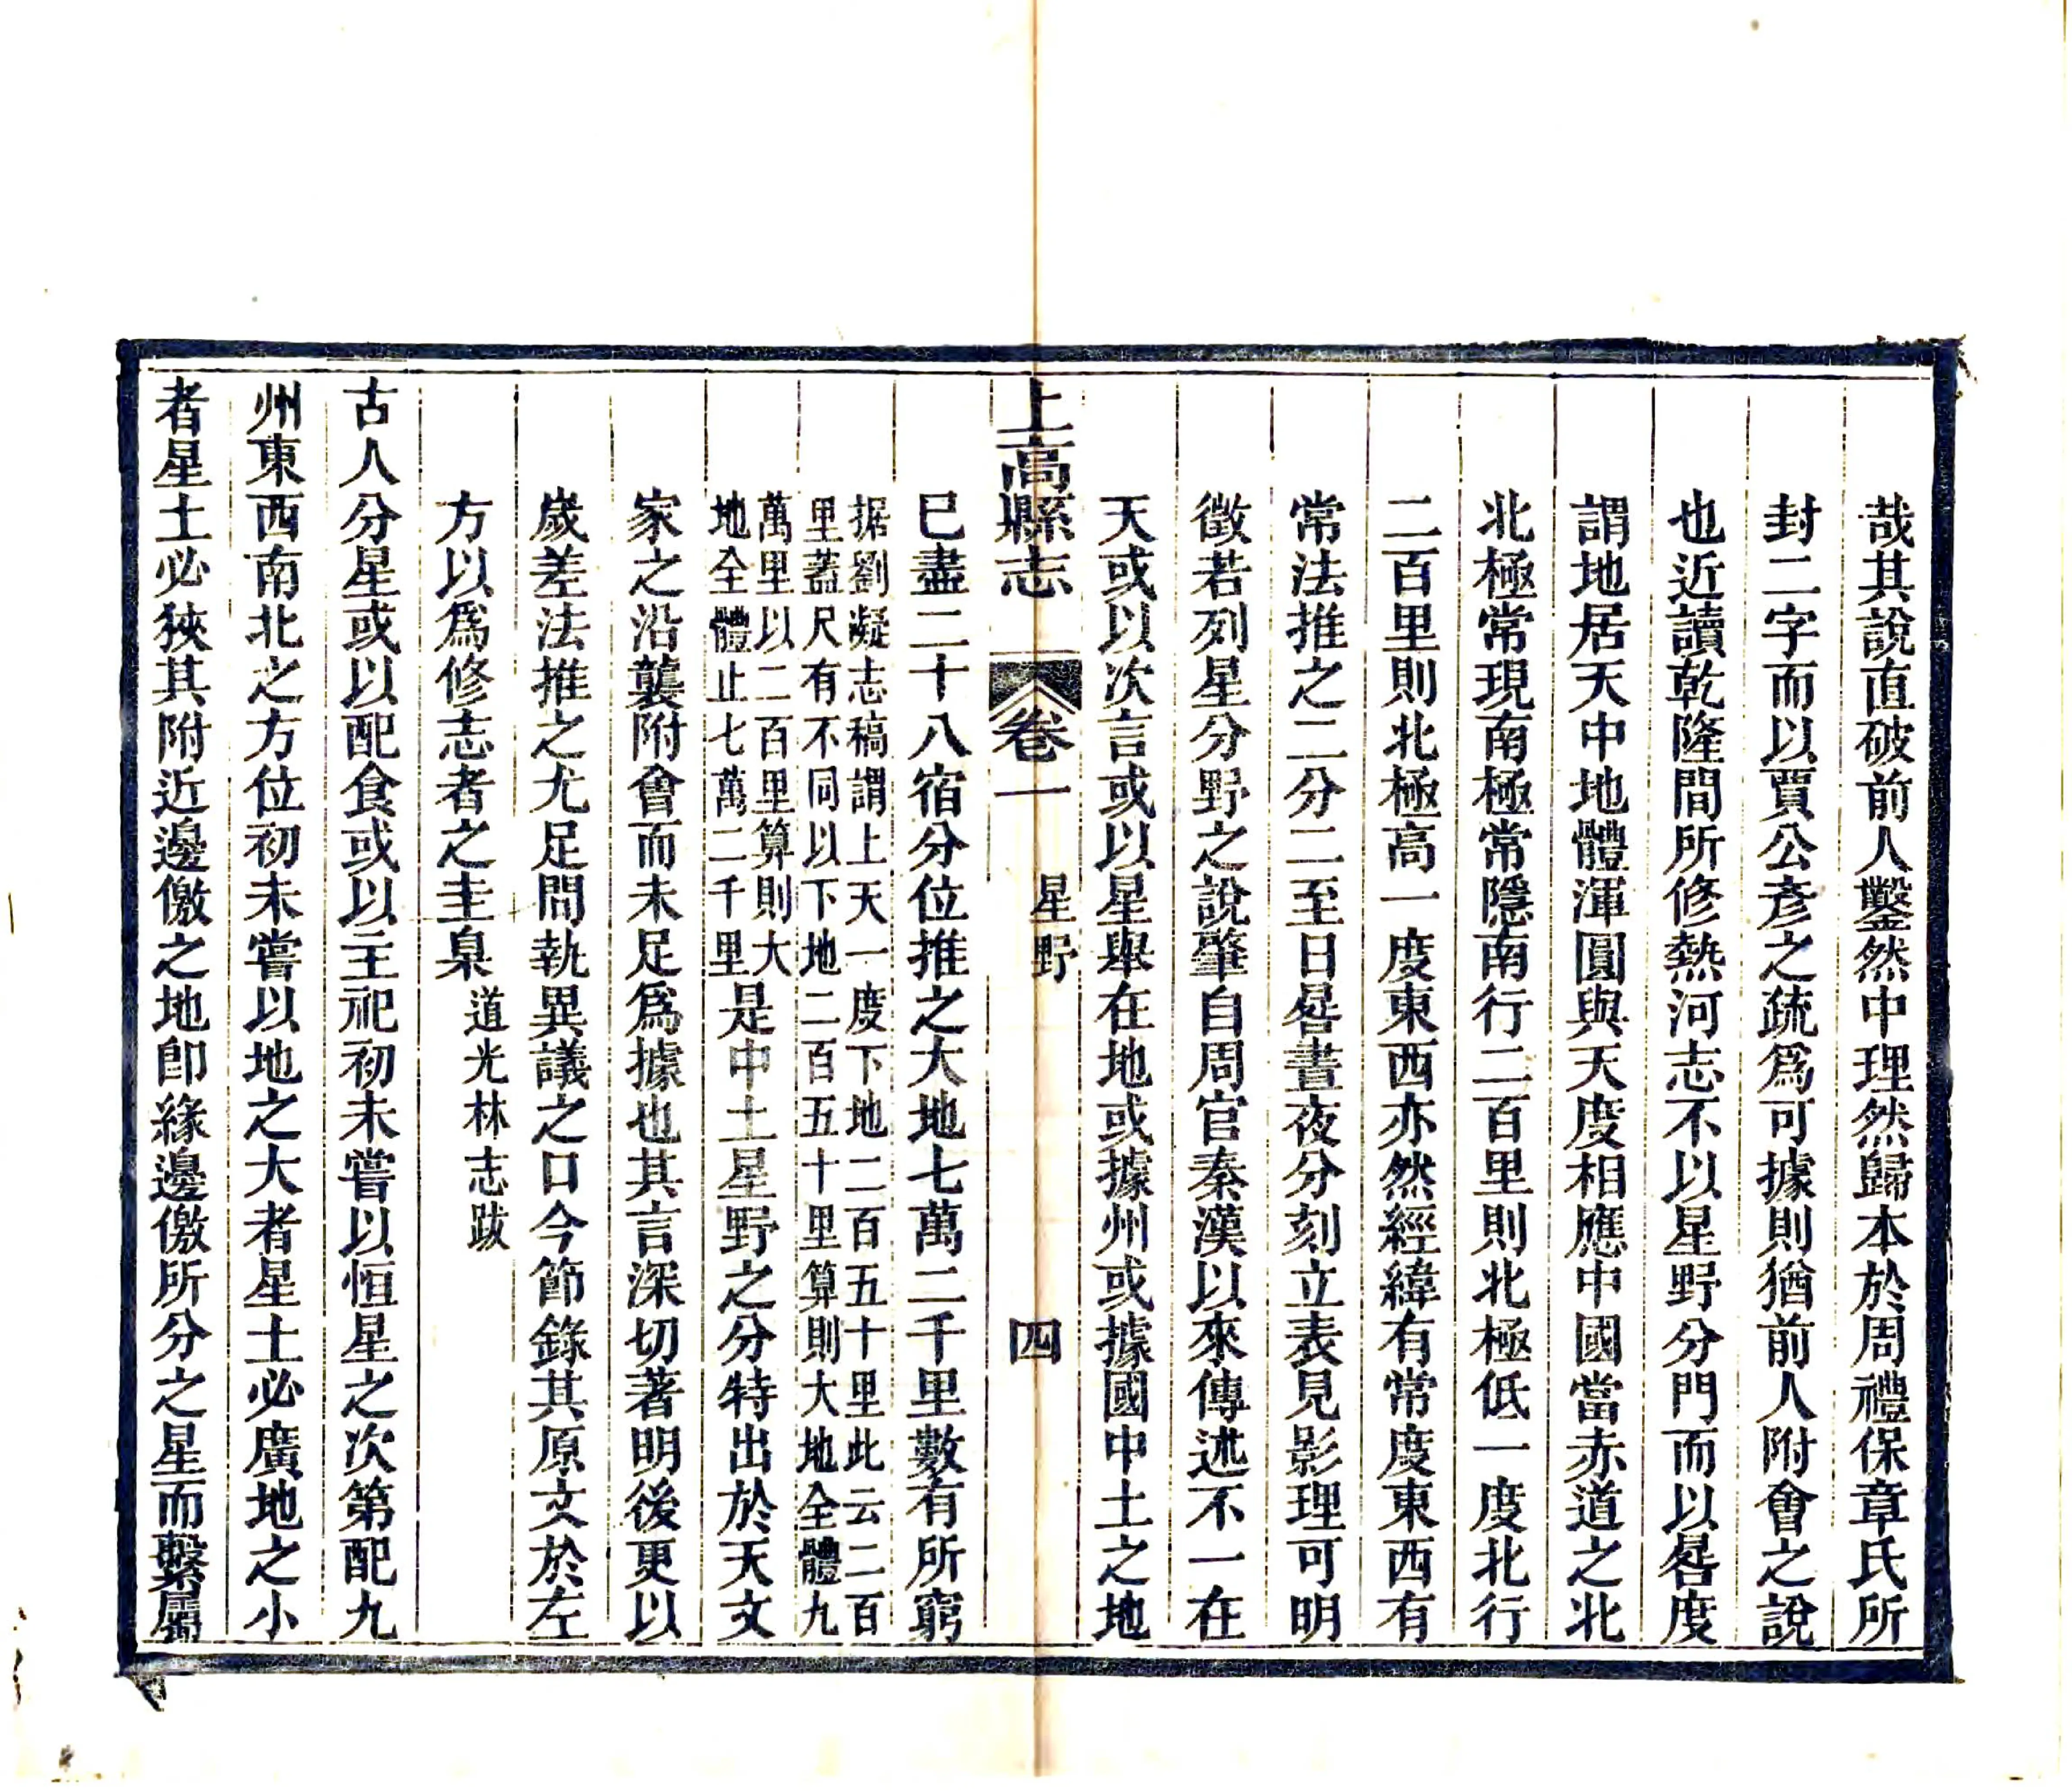 哉其說直破前人鑿然中理然歸本於周禮保章氏所
封二字而以賈公彥之疏爲可據則猶前人附會之說
也近讀乾隆間所修熱河志不以星野分門而以晷度
謂地居天中地體渾圓與天度相應中國當赤道之北
北極常現南極常隱南行二百里則北極低一度北行
二百里則北極高一度東西亦然經緯有常度東西有
常法推之二分二至日晷晝夜分刻立表見影理可明
徵若列星分野之說肇自周官秦漢以來傳述不一在
天或以次言或以星舉在地或據州或據國中土之地
上高縣志 卷一 星野 四
巳盡二十八宿分位推之大地七萬二千里數有所窮
据劉凝志稿謂上天一度下地二百五十里此云二百
里蓋尺有不同以下地二百五十里算則大地全體九
萬里以二百里算則大
地全體止七萬二千里是中土星野之分特出於天文
家之沿襲附會而未足爲據也其言深切著明後更以
歲差法推之尤足間執異議之口今節錄其原文於左
方以爲修志者之圭臬 道光林志跋
古人分星或以配食或以主祀初未嘗以恒星之次第配九
州東西南北之方位初未嘗以地之大者星土必廣地之小
者星土必狹其附近邊儌之地卽緣邊儌所分之星而繫屬